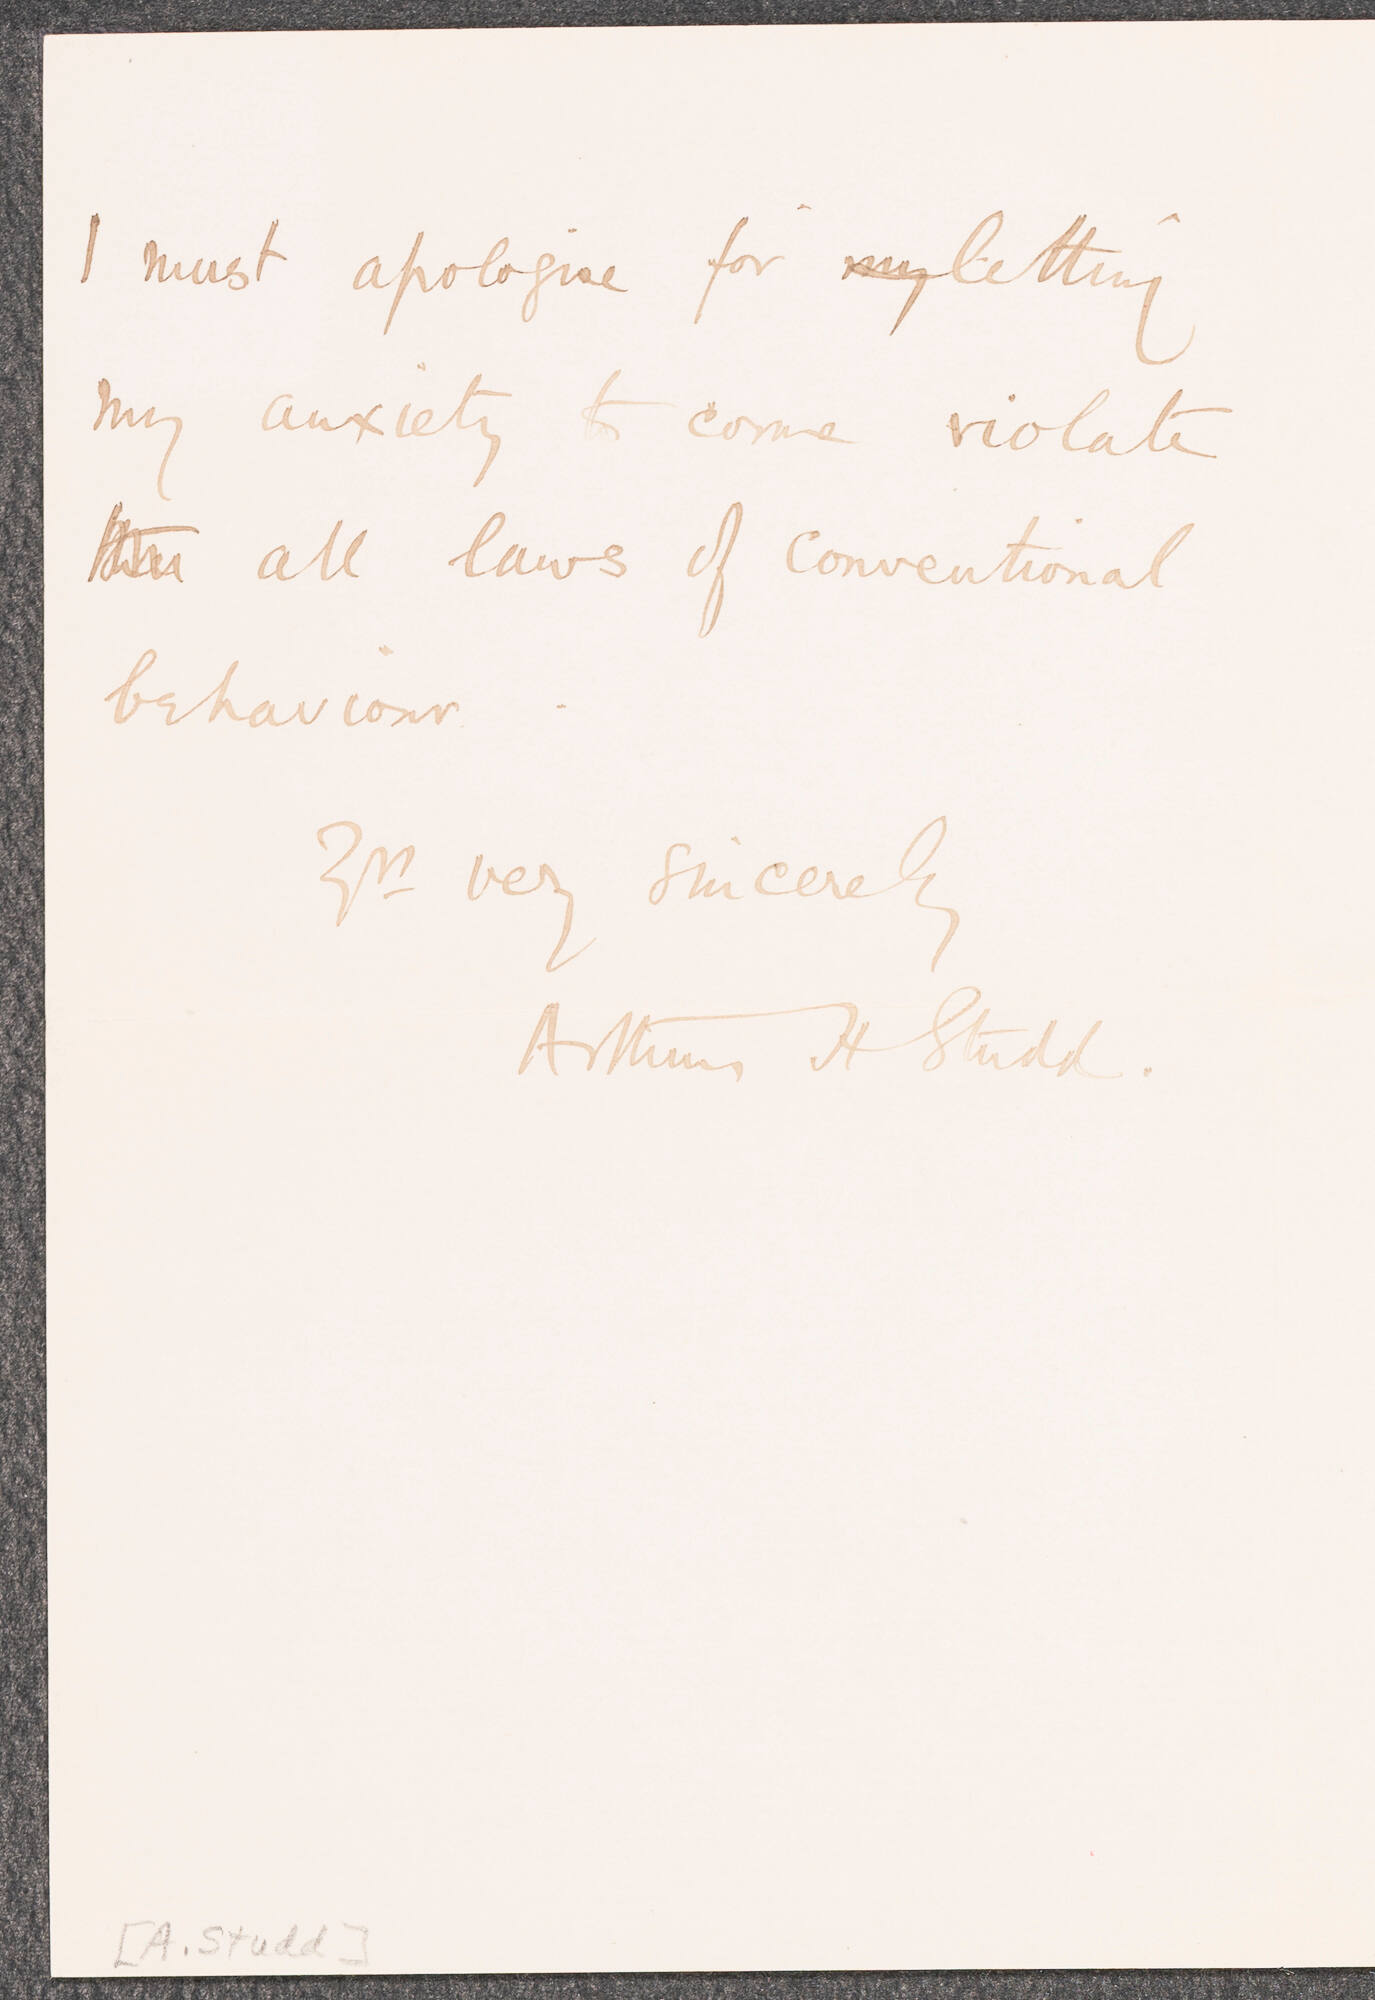 I must apologise for my letting
my anxiety to come violate
all laws of conventional
behaviour.
Yrs very sincerely
Arthur H Studd.
[A. Studd]